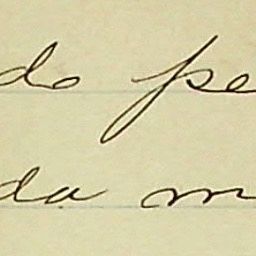 do pe
da m